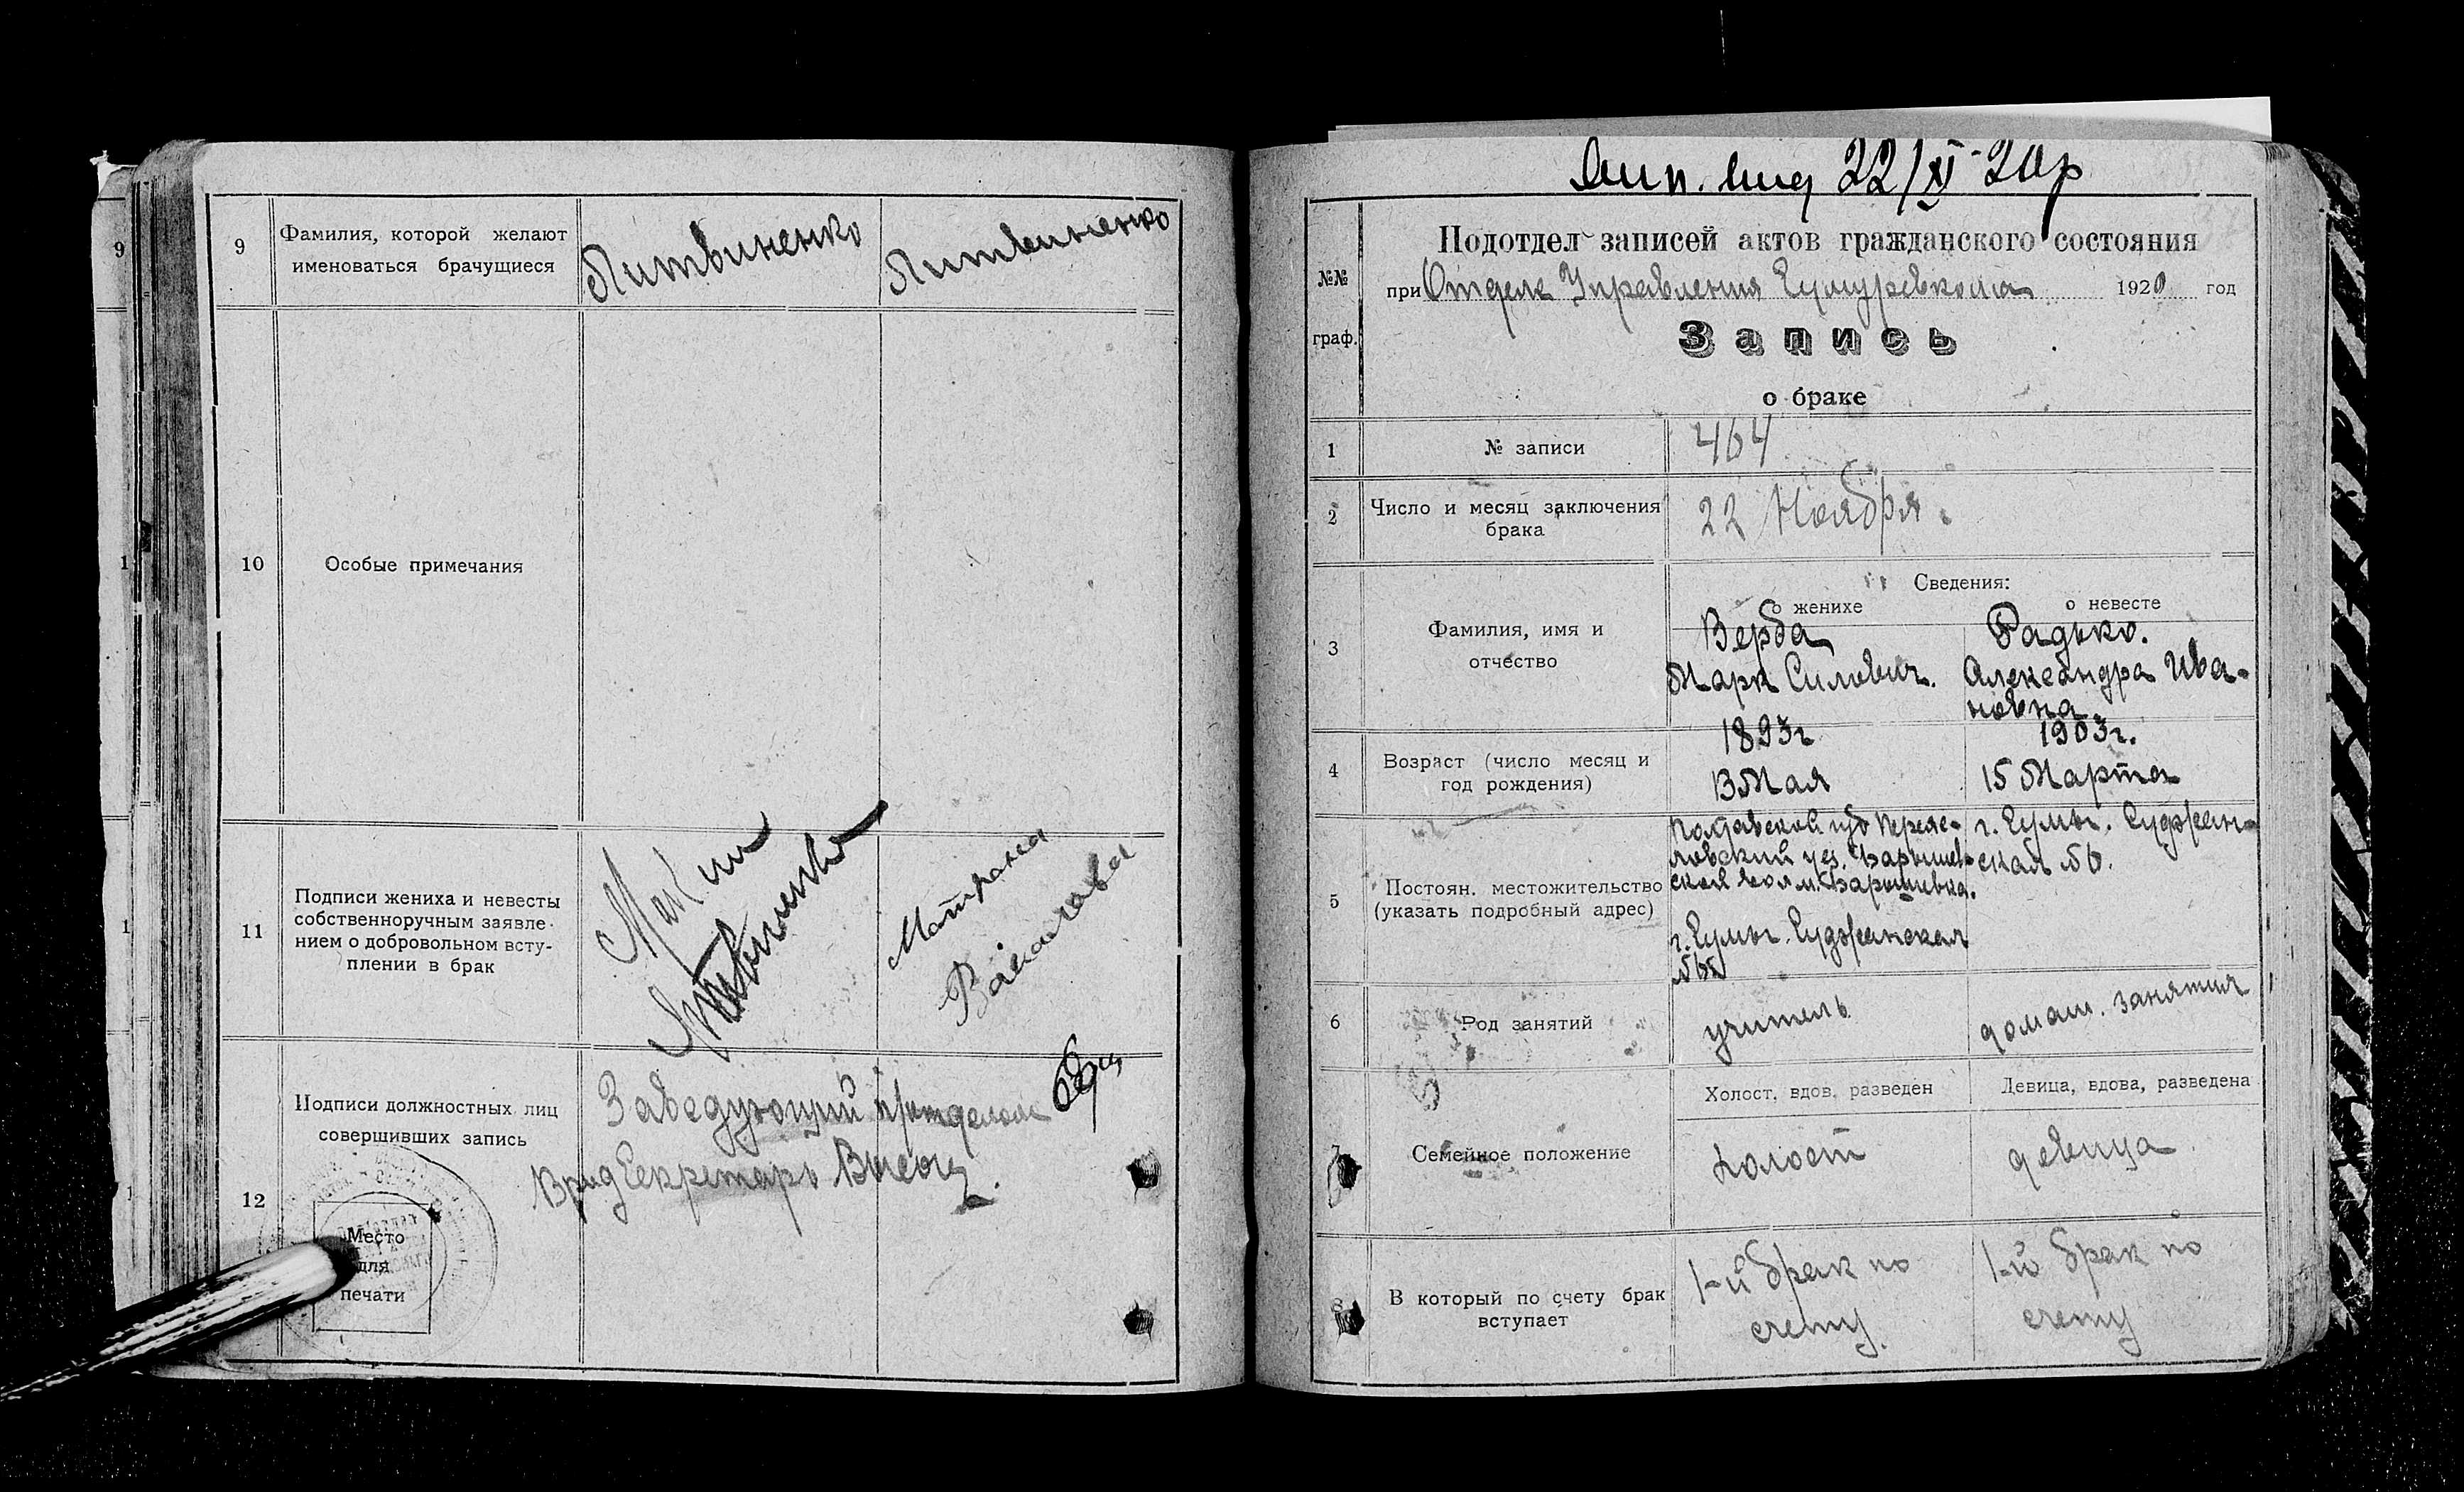 9
9
Фамилия, которой желают
именоваться брачущиеся
Литвиненко
Литвиненко
10
Особые примечания
11
Подписи жениха и невесты
собственноручным заявле-
нием о добровольном всту-
плении в брак
Литвиненко
Матрена
12
Подписи должностных лиц
совершивших запись
Заведующий
Врид Секретарь
Место
для
печати
22/XI-20г
№№
граф.
Подотдел записей актов гражданского состояния
при Отделе Управления Сумуревкома 1920 год
Запись
о браке
1
№ записи
464
2
Число и месяц заключения
брака
22 Ноября.
Сведения:
о женихе
о невесте
3
Фамилия, имя и
отчество
Верба
Марк Силович.
Радько.
Александра Ива-
новна
4
Возраст (число месяц и
год рождения)
1893г
13 Мая
1903г.
15 Марта
5
Постоян. местожительство
(указать подробный адрес)
Полтавской губ Переяс-
ловский уез. Барышев-
ской вол м. Барышевка.
г. Сумы. Суджанская
г. Сумы. Суджан-
ская
6
Род занятий
учитель
домаш. занятия
7
Семейное положение
Холост, вдов, разведен
Девица, вдова, разведена
холост
девица
8
В который по счету брак
вступает
1-й брак по
счету.
1-й брак по
счету